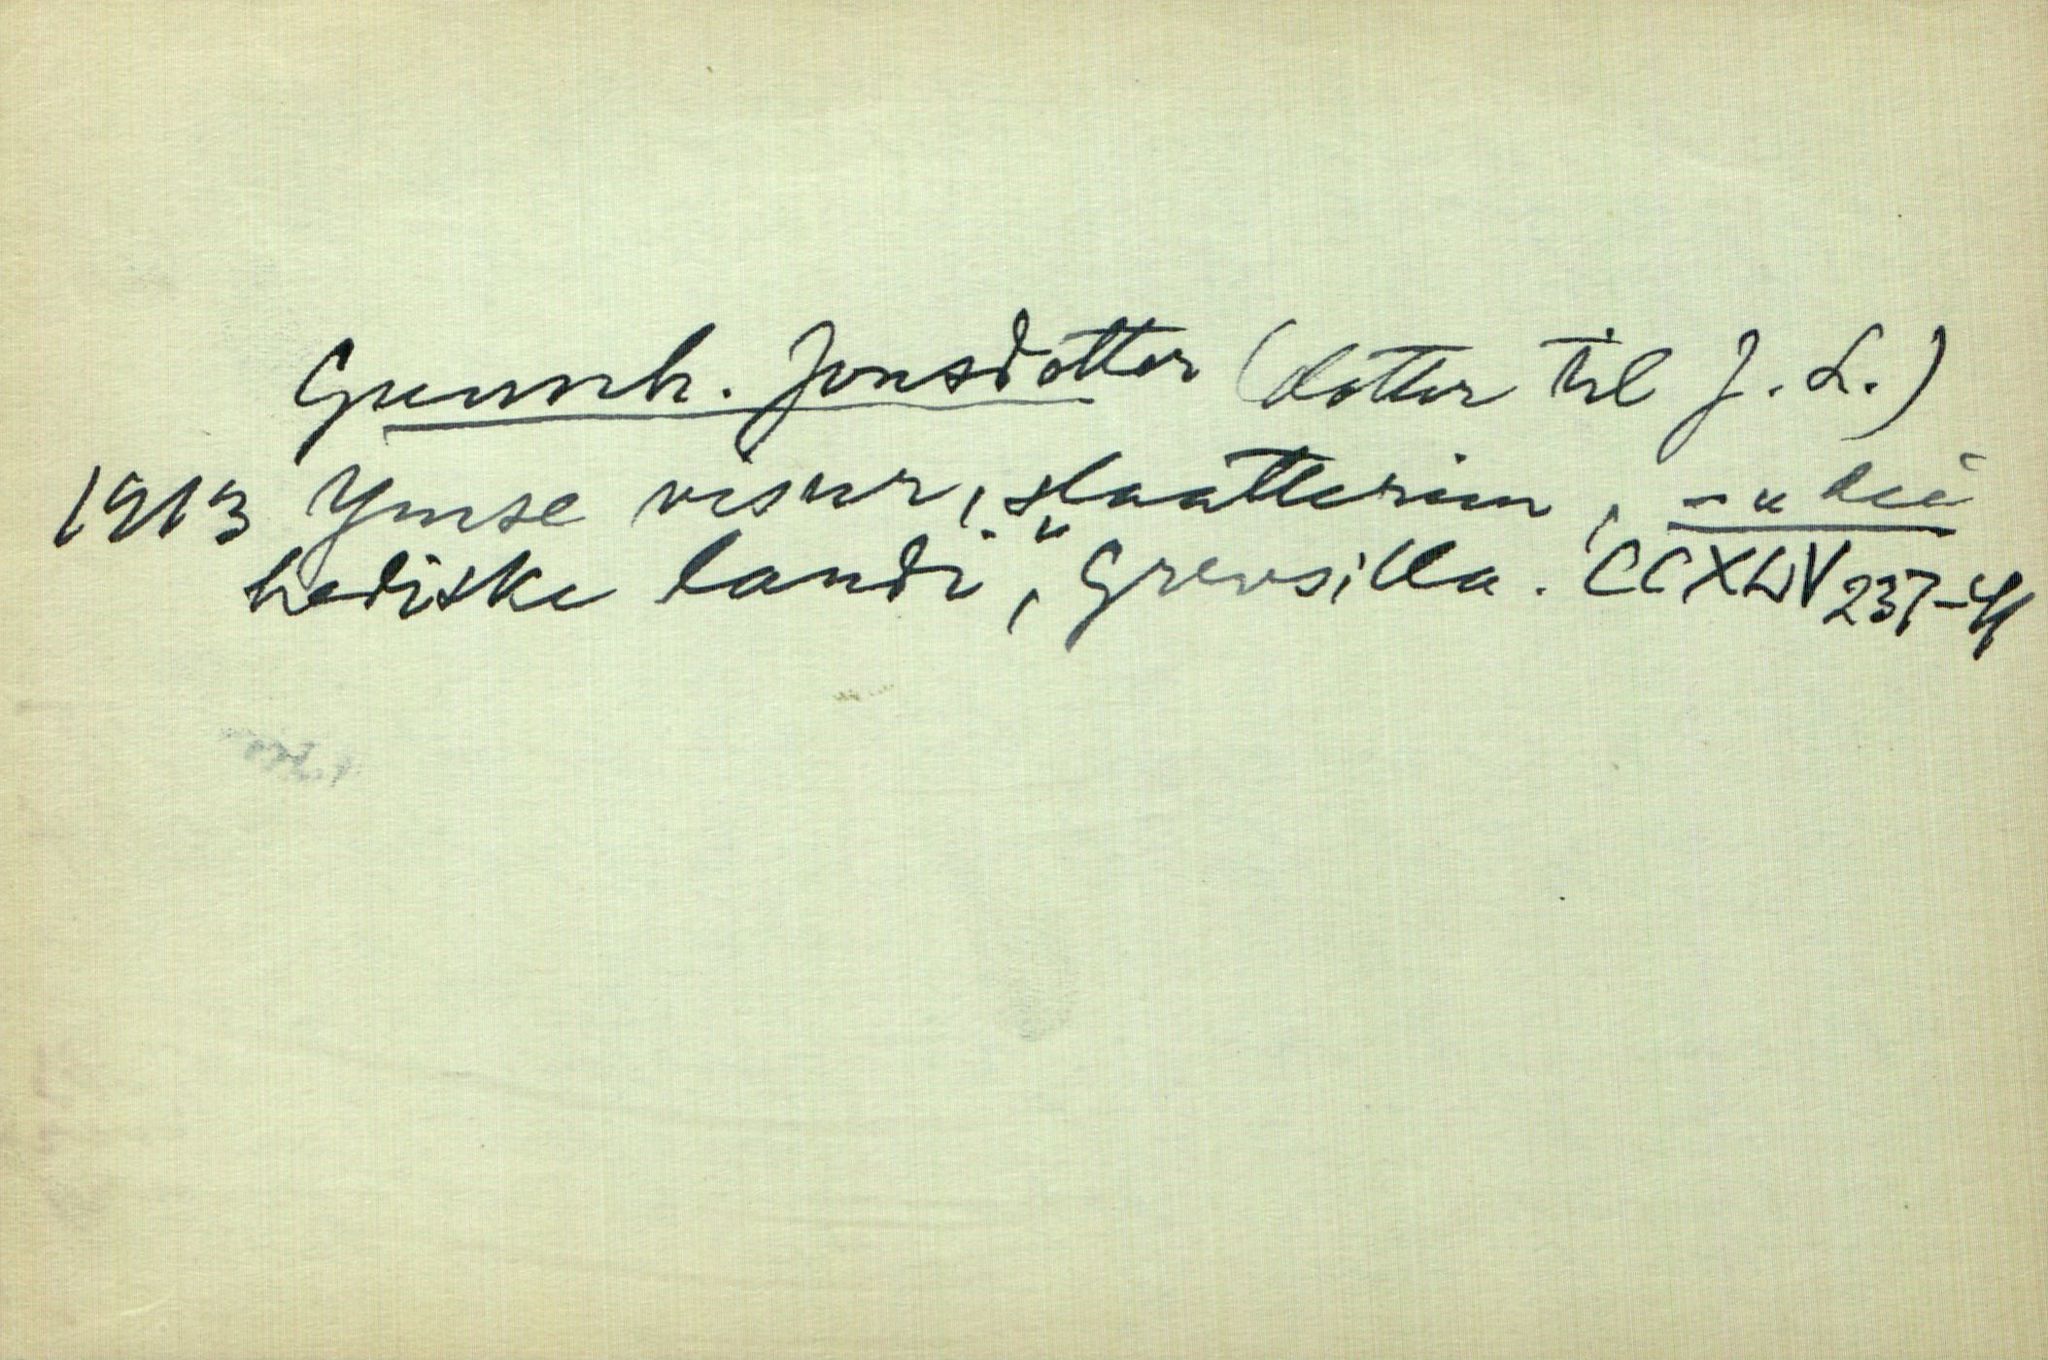 Gunnh. Jonsdotter (dotter til J. L.)
1913 Ymse visur, slaatterim, – " dei
hediske landi", Grevsilla. CCXLIV 237–41